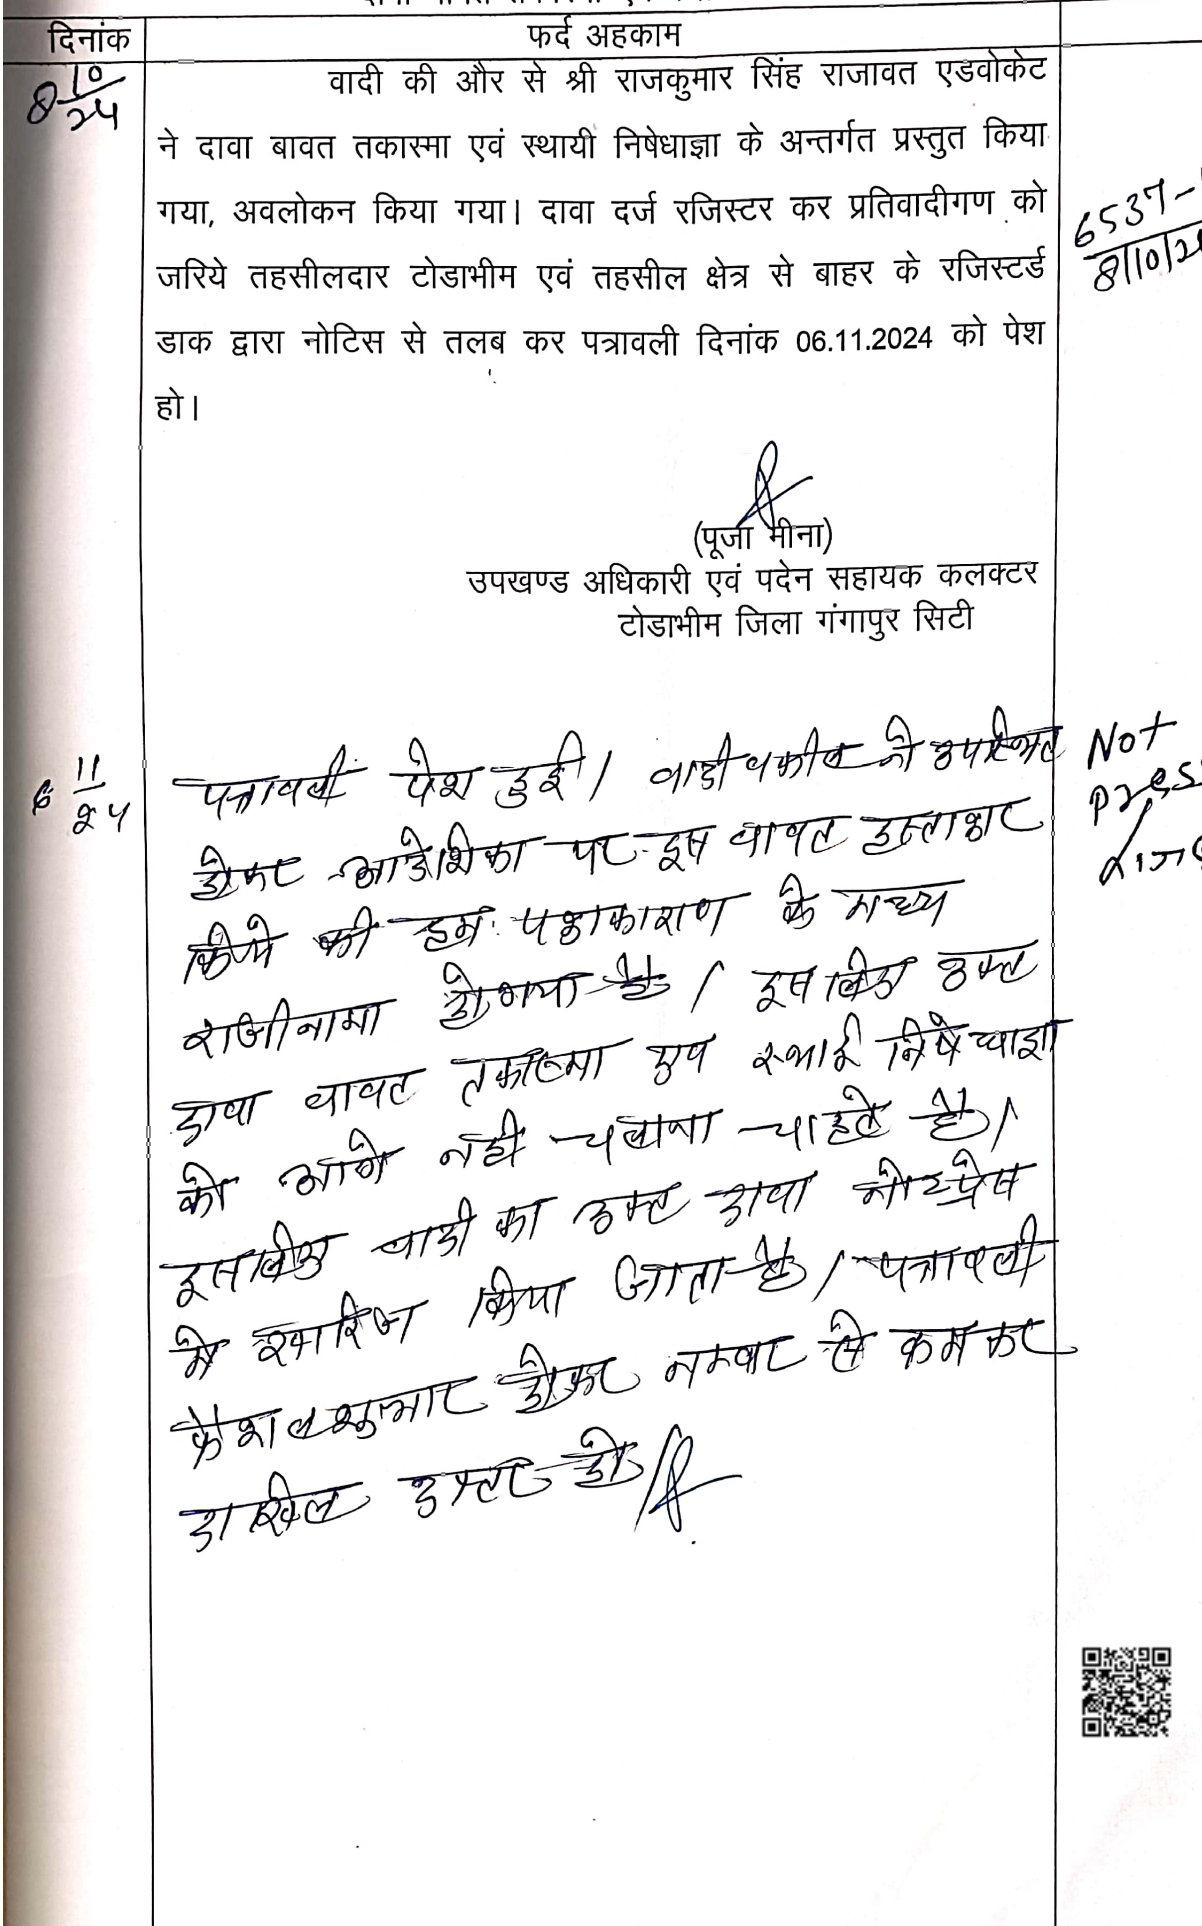 दिनांक
फर्द अहकाम
8 10/24
वादी की और से श्री राजकुमार सिंह राजावत एडवोकेट
ने दावा बावत तकास्मा एवं स्थायी निषेधाज्ञा के अन्तर्गत प्रस्तुत किया
गया, अवलोकन किया गया। दावा दर्ज रजिस्टर कर प्रतिवादीगण को
जरिये तहसीलदार टोडाभीम एवं तहसील क्षेत्र से बाहर के रजिस्टर्ड
डाक द्वारा नोटिस से तलब कर पत्रावली दिनांक 06.11.2024 को पेश
हो।
6537-
8/10/2
(पूजा मीना)
उपखण्ड अधिकारी एवं पदेन सहायक कलक्टर
टोडाभीम जिला गंगापुर सिटी
6 11/24
पत्रावली पेश हुई। वादी वकील ने उपस्थित
होकर आदेशिका पर इस बावत हस्ताक्षर
किये की हम पक्षकारान के मध्य
राजीनामा हो गया है। इसलिए उक्त
दावा बावत तकास्मा एवं स्थाई निषेधाज्ञा
को आगे नही चलाना चाहते है।
इसलिए वादी का उक्त दावा नोटप्रेस
मे खारिज किया जाता है। पत्रावली
फैशलशुमार होकर नम्बर से कम कर
दाखिल दफ्तर हो।
Not
Press